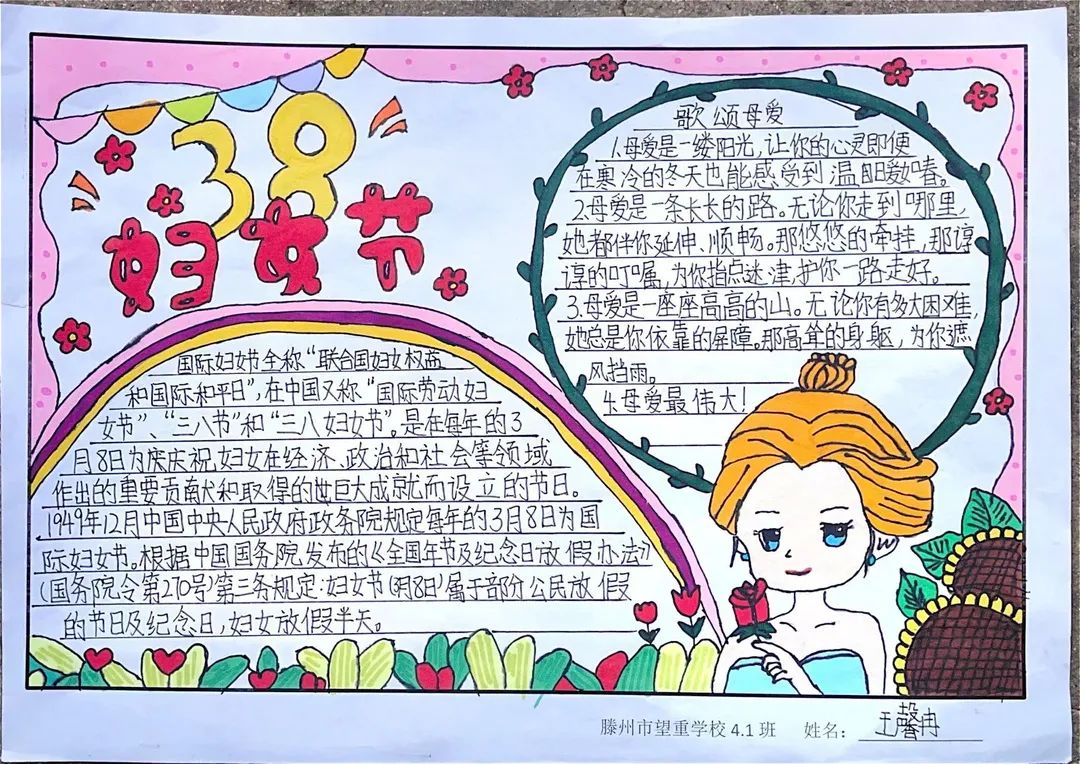 38
妇女节
歌颂母爱
1.母爱是一缕阳光,让你的心灵即便
在寒冷的冬天也能感受到温暖如春。
2.母爱是一条长长的路。无论你走到哪里,
她都伴你延伸、顺畅。那悠悠的牵挂,那谆
谆的叮嘱,为你指点迷津,护你一路走好。
3.母爱是一座座高高的山。无论你有多大困难,
她总是你依靠的屏障。那高耸的身躯,为你遮
风挡雨。
4.母爱最伟大!
国际妇女节全称“联合国妇女权益
和国际和平日”,在中国又称“国际劳动妇
女节”、“三八节”和“三八妇女节”。是在每年的3
月8日为庆祝妇女在经济、政治和社会等领域
作出的重要贡献和取得的巨大成就而设立的节日。
1949年12月中国中央人民政府政务院规定每年的3月8日为国
际妇女节。根据中国国务院发布的《全国年节及纪念日放假办法》
(国务院令第270号)第三条规定:妇女节(3月8日)属于部份公民放假
的节日及纪念日,妇女放假半天。
滕州市望重学校4.1班 姓名: 王馨冉